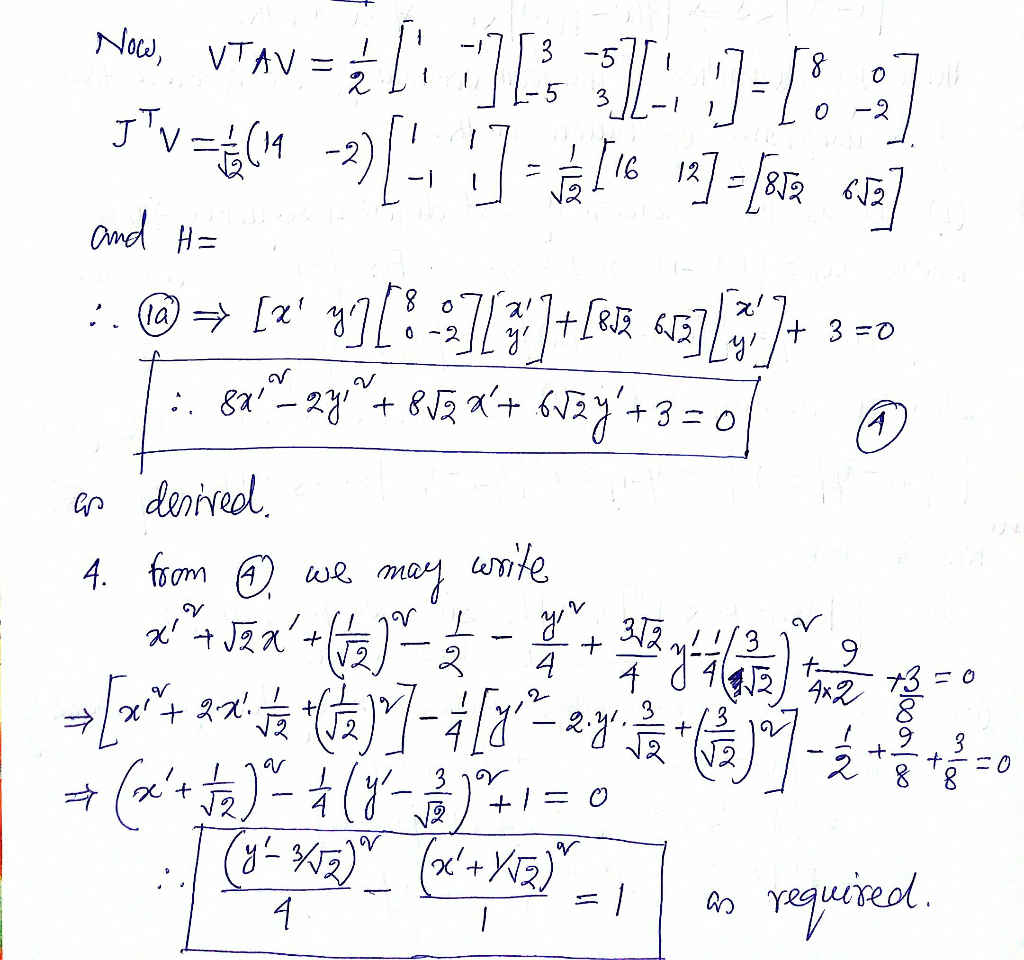 Now, VᵀAV = 1/2 [1 -1; 1 1] [3 -5; -5 3] [1 1; -1 1] = [8 0; 0 -2].
JᵀV = 1/√2 (14 -2) [1 1; -1 1] = 1/√2 [16 12] = [8√2 6√2]
and H=
∴ (1a) ⇒ [x' y'] [8 0; 0 -2] [x'; y'] + [8√2 6√2] [x'; y'] + 3 = 0
∴ 8x'² - 2y'² + 8√2 x' + 6√2 y' + 3 = 0 (4)
as desired.
4. from (4), we may write
x'² + √2 x' + (1/√2)² - 1/2 - y'²/4 + 3√2/4 y' - 1/4 (3/√2)² + 9/4×2 + 3/8 = 0
⇒ [x'² + 2x'. 1/√2 + (1/√2)²] - 1/4 [y'² - 2.y'. 3/√2 + (3/√2)²] - 1/2 + 9/8 + 3/8 = 0
⇒ (x' + 1/√2)² - 1/4 (y' - 3/√2)² + 1 = 0
∴ (y' - 3/√2)²/4 - (x' + 1/√2)²/1 = 1 as required.